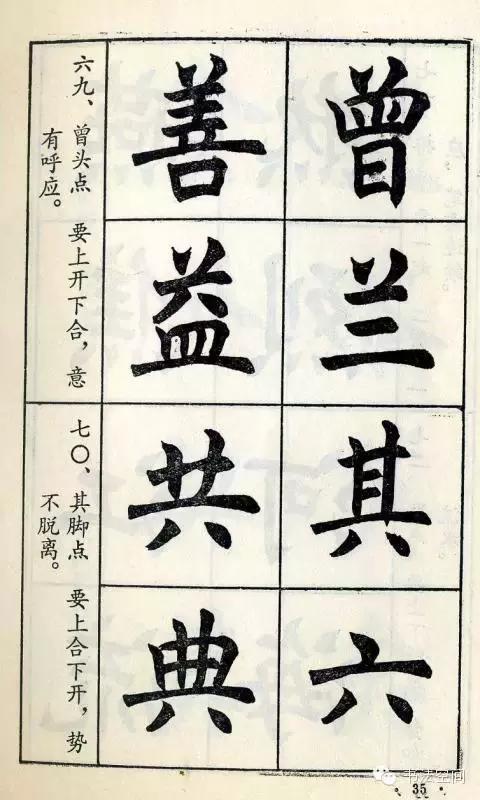 曾兰其六
善益共典
六九、曾头点 要上开下合，意
有呼应。
七〇、其脚点 要上合下开，势
不脱离。
书法空间
· 35 ·